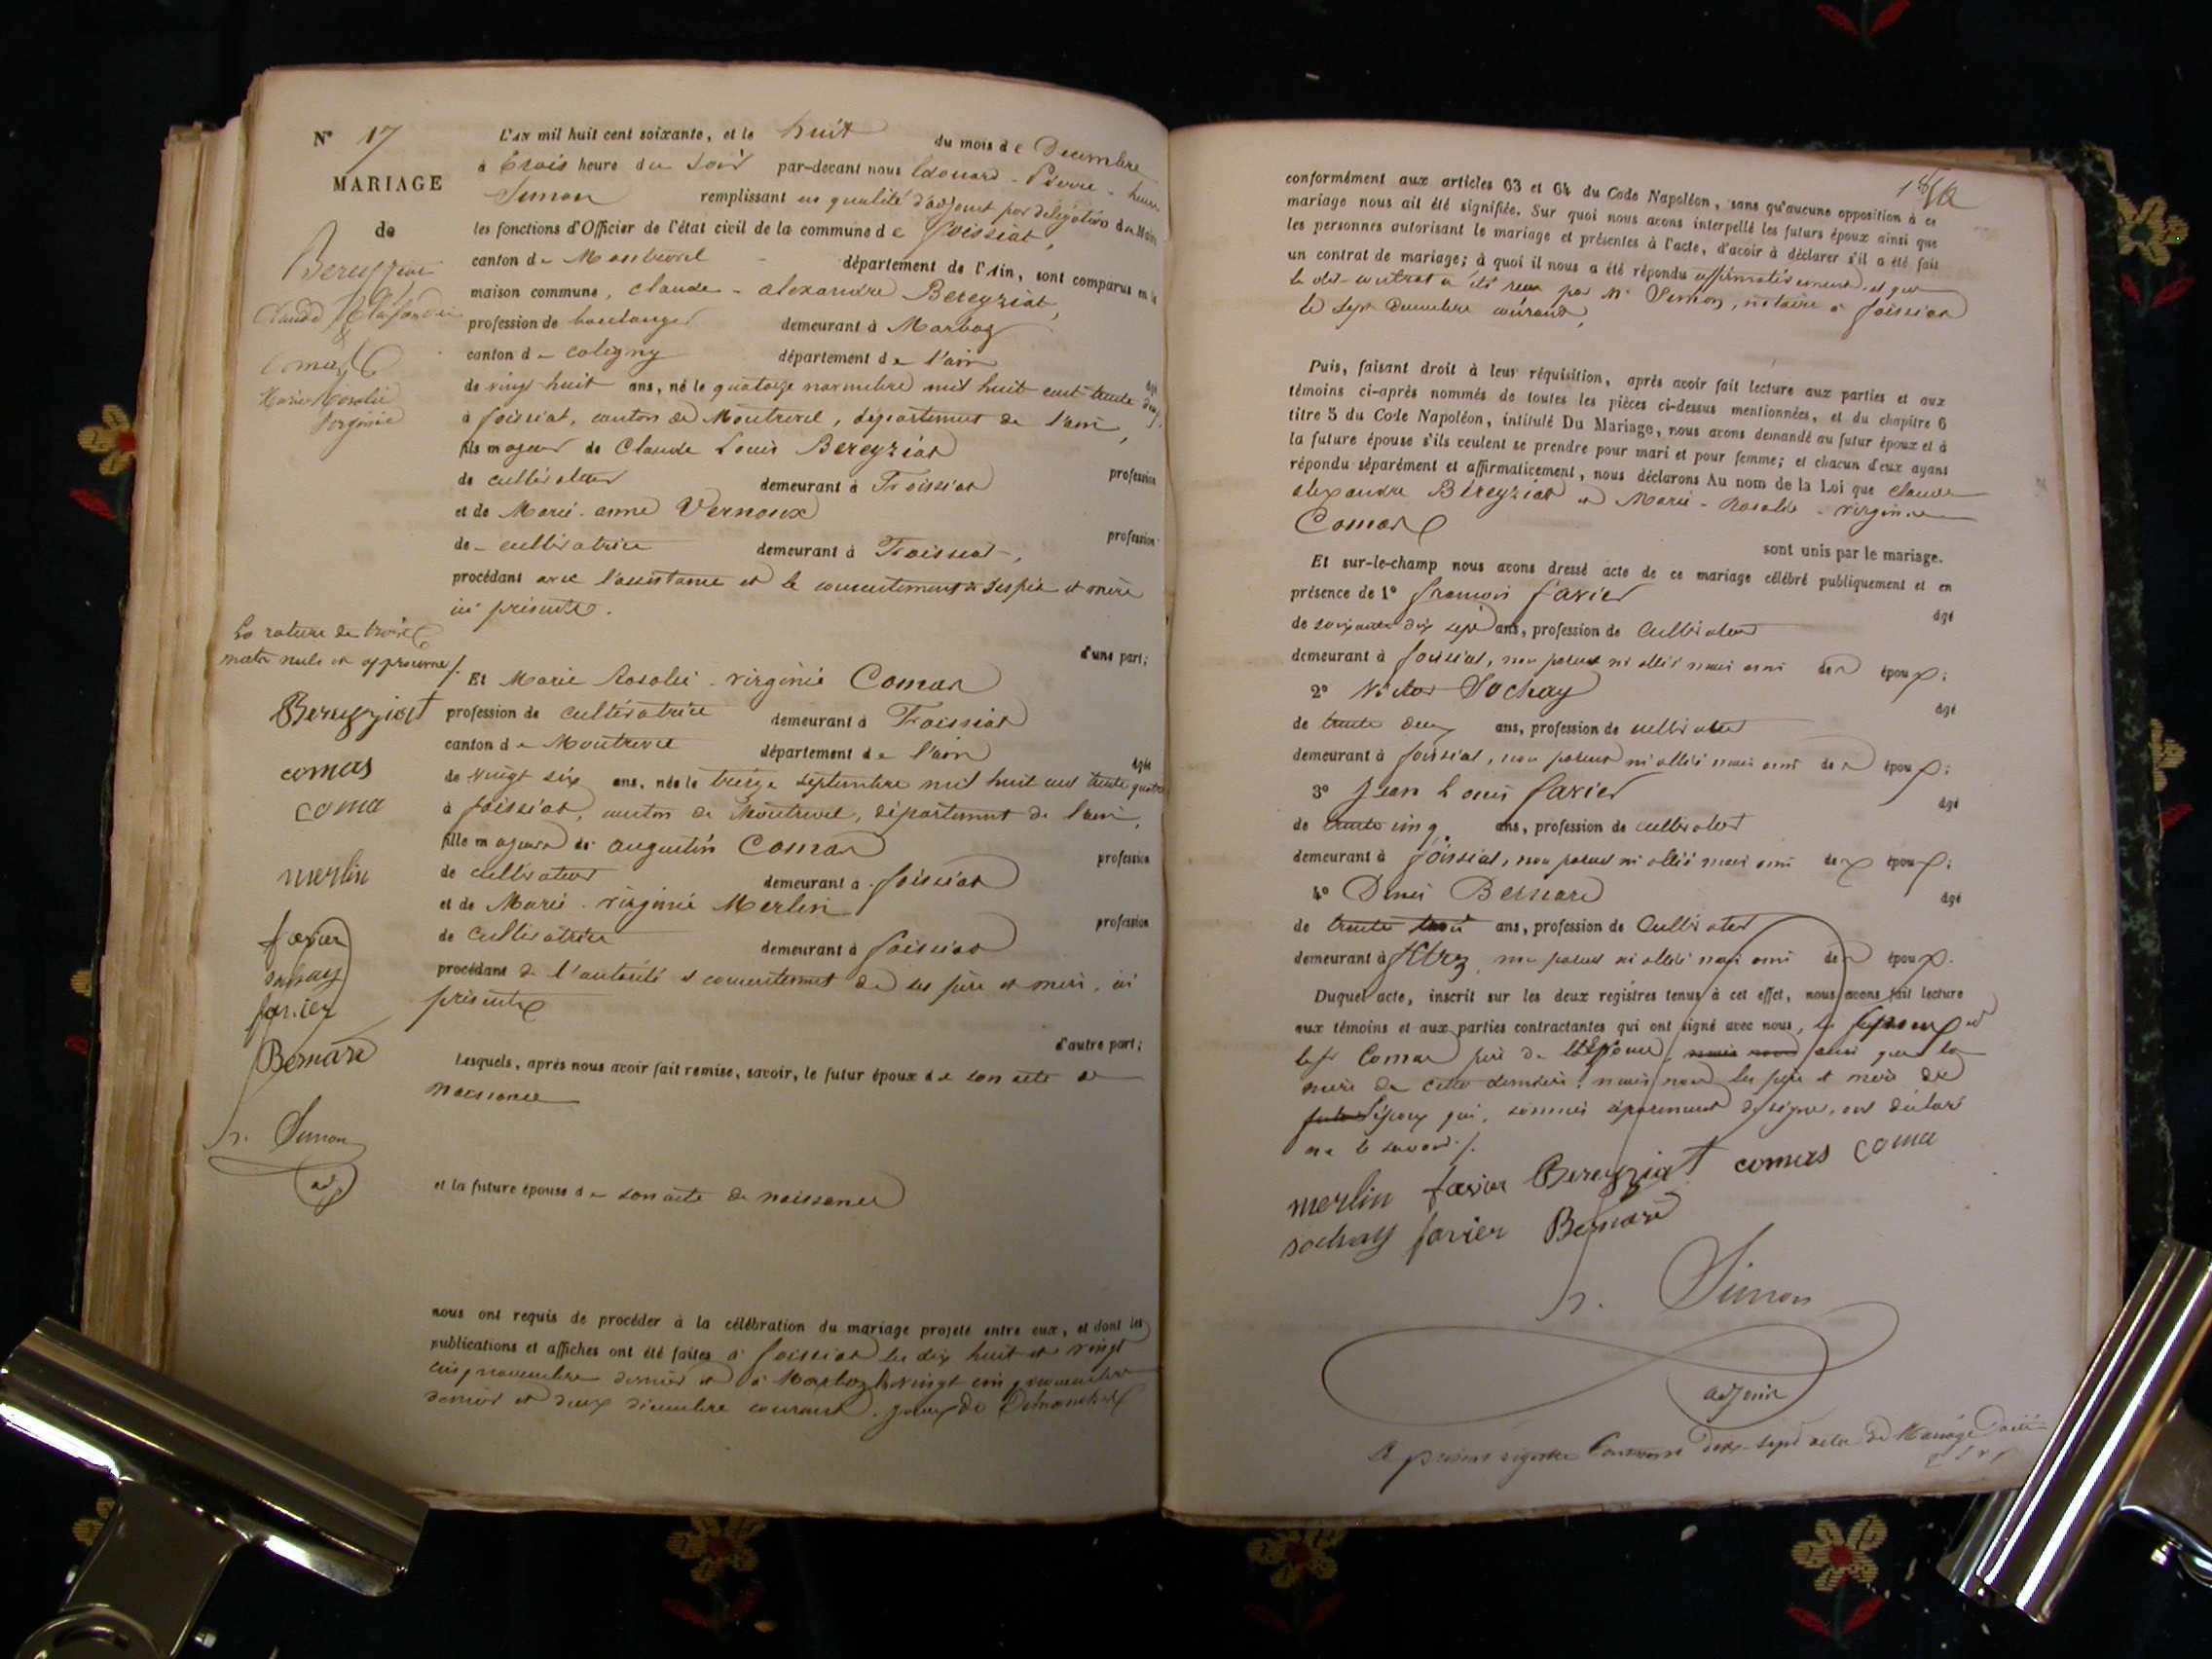 N° 17
MARIAGE
de
Bereyziat
Claude Alexandre
&
Comas
Marie Rosalie
Virginie
L'AN mil huit cent soixante, et le huit du mois de Decembre
à trois heure du soir par-devant nous Edouard - Pierre - henri
Simon remplissant en qualité d'adjoint par délégation du Maire
les fonctions d'Officier de l'état civil de la commune de foissiat,
canton de Montrevel département de l'Ain, sont comparus en la
maison commune, claude - alexandre Bereyziat,
profession de boulanger demeurant à Marboz
canton de coligny département de l'ain âgé
de vingt-huit ans, né le quatorze novembre mil huit cent trente deux,
à foissiat, canton de Montrevel, département de l'ain,
fils majeur de Claude Louis Bereyziat profession
de cultivateur demeurant à Foissiat
et de Marie-anne Vernoux profession
de cultivatrice demeurant à Foissiat,
procédant avec l'assistance et le consentement de ses père et mère
ici présents.
d'une part;
La rature de trois
mots nuls est approuvée ./.
Et Marie Rosalie - virginie Comas
profession de cultivatrice demeurant à Foissiat
canton de Montrevel département de l'ain âgée
de vingt six ans, née le treize septembre mil huit cent trente quatre
à foissiat, canton de Montrevel, département de l'ain,
fille majeure de augustin Comas profession
de cultivateur demeurant à foissiat
et de Marie - virginie Merlin profession
de cultivatrice demeurant à foissiat
procédant de l'autorité et consentement de ses père et mère, ici
présents
d'autre part;
Bereyziat
comas
coma
merlin
favier
sochay
favier
Bernard
h. Simon
adj
Lesquels, après nous avoir fait remise, savoir, le futur époux de son acte de
naissance
et la future épouse de son acte de naissance
nous ont requis de procéder à la célébration du mariage projeté entre eux, et dont les
publications et affiches ont été faites à foissiat les dix huit et vingt
cinq novembre dernier et à Marboz le vingt cinq novembre
dernier et deux décembre courant, jours de Dimanches
conformément aux articles 63 et 64 du Code Napoléon, sans qu'aucune opposition à ce
mariage nous ait été signifiée. Sur quoi nous avons interpellé les futurs époux ainsi que
les personnes autorisant le mariage et présentes à l'acte, d'avoir à déclarer s'il a été fait
un contrat de mariage; à quoi il nous a été répondu affirmativement, et que
le dit contrat a été reçu par Mr Simon, notaire à foissiat
le sept décembre courant,
Puis, faisant droit à leur réquisition, après avoir fait lecture aux parties et aux
témoins ci-après nommés de toutes les pièces ci-dessus mentionnées, et du chapitre 6
titre 5 du Code Napoléon, intitulé Du Mariage, nous avons demandé au futur époux et à
la future épouse s'ils veulent se prendre pour mari et pour femme; et chacun d'eux ayant
répondu séparément et affirmativement, nous déclarons Au nom de la Loi que claude
alexandre Bereyziat et Marie - Rosalie - virginie
Comas
sont unis par le mariage.
Et sur-le-champ nous avons dressé acte de ce mariage célébré publiquement et en
présence de 1° francois favier âgé
de soixante dix sept ans, profession de Cultivateur
demeurant à foissiat, non parent ni allié mais ami des époux;
2° Victor Sochay âgé
de trente deux ans, profession de cultivateur
demeurant à foissiat, non parent ni allié mais ami des époux;
3° Jean Louis favier âgé
de trente cinq ans, profession de cultivateur
demeurant à foissiat, non parent ni allié mais ami des époux;
4° Denis Bernard âgé
de trente trois ans, profession de Cultivateur
demeurant à non parent ni allié mais ami des époux.
Duquel acte, inscrit sur les deux registres tenus à cet effet, nous avons fait lecture
aux témoins et aux parties contractantes qui ont signé avec nous, les époux et
le sr Comas père de l'Epouse, mais non ainsi que la
mère de cette dernière; mais non les père et mère de
l'époux qui, sommés séparément de signer, ont déclaré
ne le savoir ./.
merlin favier Bereyziat comas coma
sochay favier Bernard
h. Simon
adjoint
Le présent registre Contenant dix-sept actes de Mariage